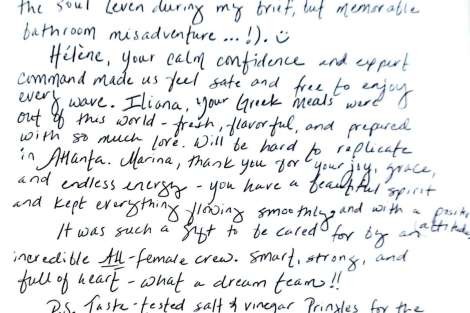 the soul (even during my brief, but memorable
bathroom misadventure...!). ☺
Hélène, your calm confidence and expert
command made us feel safe and free to enjoy
every wave. Iliana, your Greek meals were
out of this world - fresh, flavorful, and prepared
with so much love. Will be hard to replicate
in Atlanta. Marina, thank you for your joy, grace,
and endless energy - you have a beautiful spirit
and kept everything flowing smoothly and with a positive attitude.
It was such a gift to be cared for by an
incredible All-female crew. Smart, strong, and
full of heart - what a dream team!!
P.S. Taste-tested salt & vinegar Prinxles for the